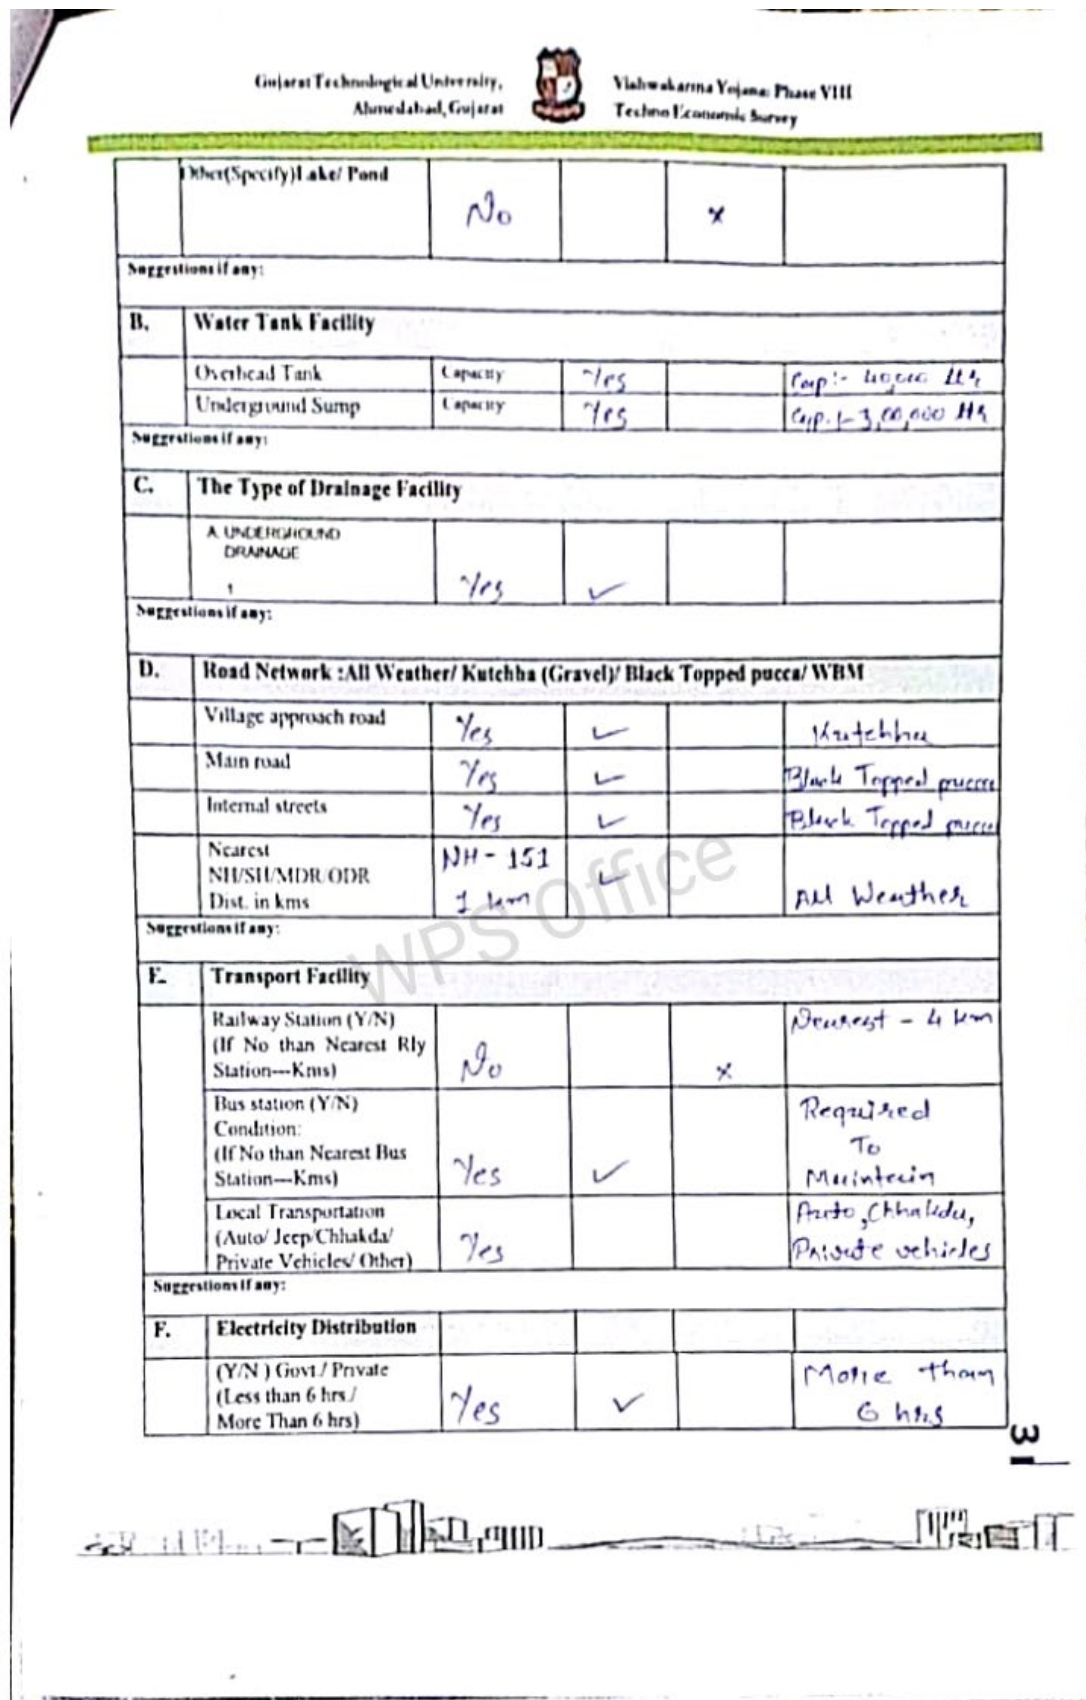 Gujarat Technological University,
Ahmedabad, Gujarat
Vishwakarma Yojana: Phase VIII
Techno Economic Survey
Other(Specify)Lake/ Pond No ×
Suggestions if any:
B. Water Tank Facility
Overhead Tank Capacity Yes Cap:- 40,000 Ltr
Underground Sump Capacity Yes Cap.:- 3,00,000 Ltr
Suggestions if any:
C. The Type of Drainage Facility
A. UNDERGROUND
DRAINAGE
1 Yes ✓
Suggestions if any:
D. Road Network :All Weather/ Kutchha (Gravel)/ Black Topped pucca/ WBM
Village approach road Yes ✓ Kutchha
Main road Yes ✓ Black Topped pucca
Internal streets Yes ✓ Black Topped pucca
Nearest NH - 151
NH/SH/MDR/ODR ✓
Dist. in kms 1 km All Weather
Suggestions if any:
E. Transport Facility
Railway Station (Y/N) Nearest - 4 km
(If No than Nearest Rly
Station---Kms) No ×
Bus station (Y/N) Required
Condition: To
(If No than Nearest Bus
Station---Kms) Yes ✓ Maintain
Local Transportation Auto, Chhakdu,
(Auto/ Jeep/Chhakda/ Yes
Private Vehicles/ Other) Private vehicles
Suggestions if any:
F. Electricity Distribution
(Y/N ) Govt./ Private More than
(Less than 6 hrs./ Yes ✓
More Than 6 hrs) 6 hrs
31
WPS Office